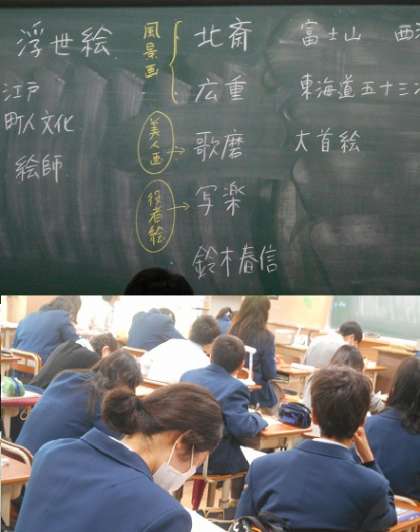 浮世絵
江戸
町人文化
絵師
風景画
北斎 富士山
広重 東海道五十三
美人画 → 歌磨 大首絵
役者絵 → 写楽
鈴木春信